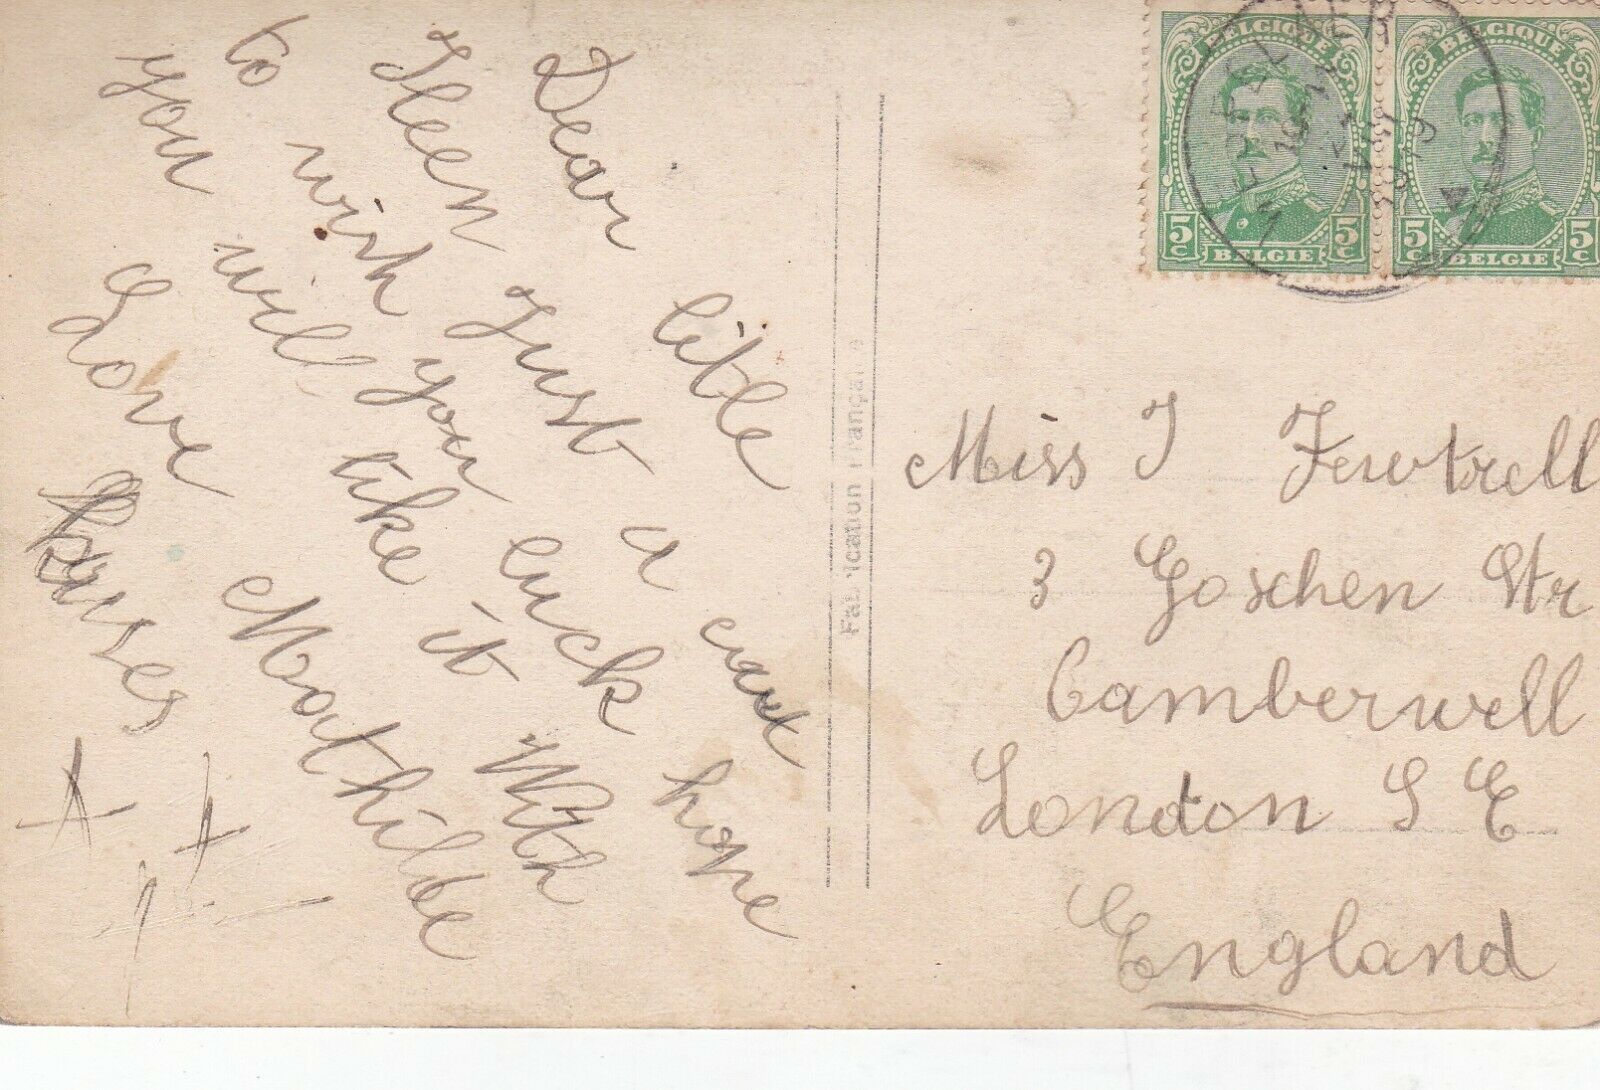 Dear litle
Ileen Just a card
to wish you luck hope
you will like it With
Love Mathilde
kises
Fabrication Française
BELGIQUE
5c 5c
BELGIE
BELGIQUE
5c 5c
BELGIE
1919
Miss I Fewtrell
3 Goschen Str
Camberwell
London S E
England